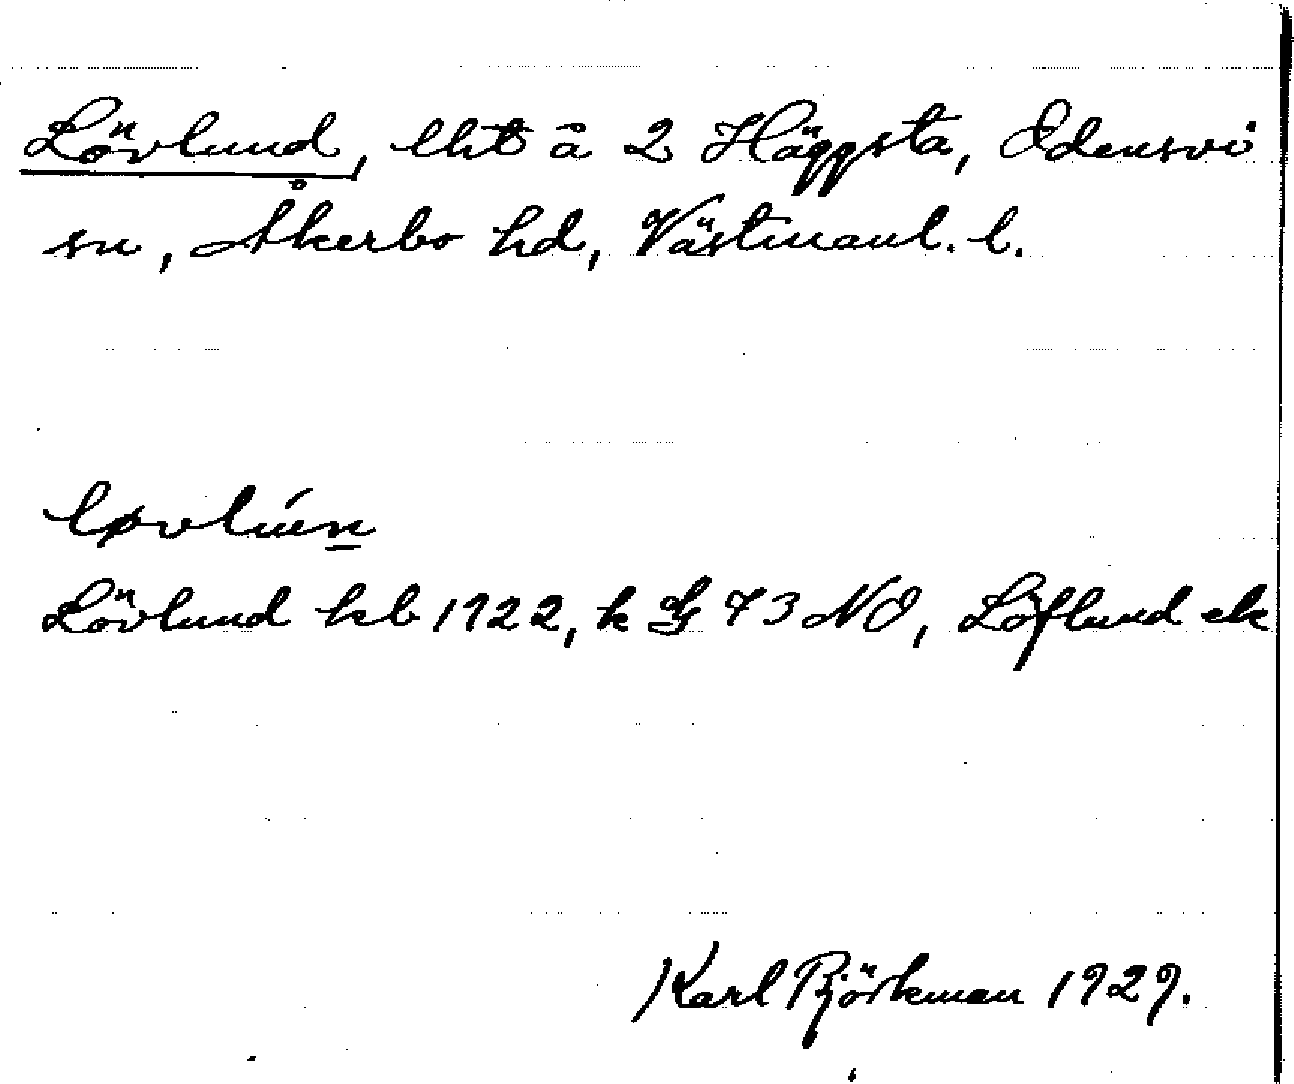 Lövlund, lht å 2 Häggsta, Odensvi
sn, Åkerbo hd, Västmanl. l.
løvlúṉ
Lövlund kb 1922, k 73 NO, Löflund ek
Karl Björkman 1929.